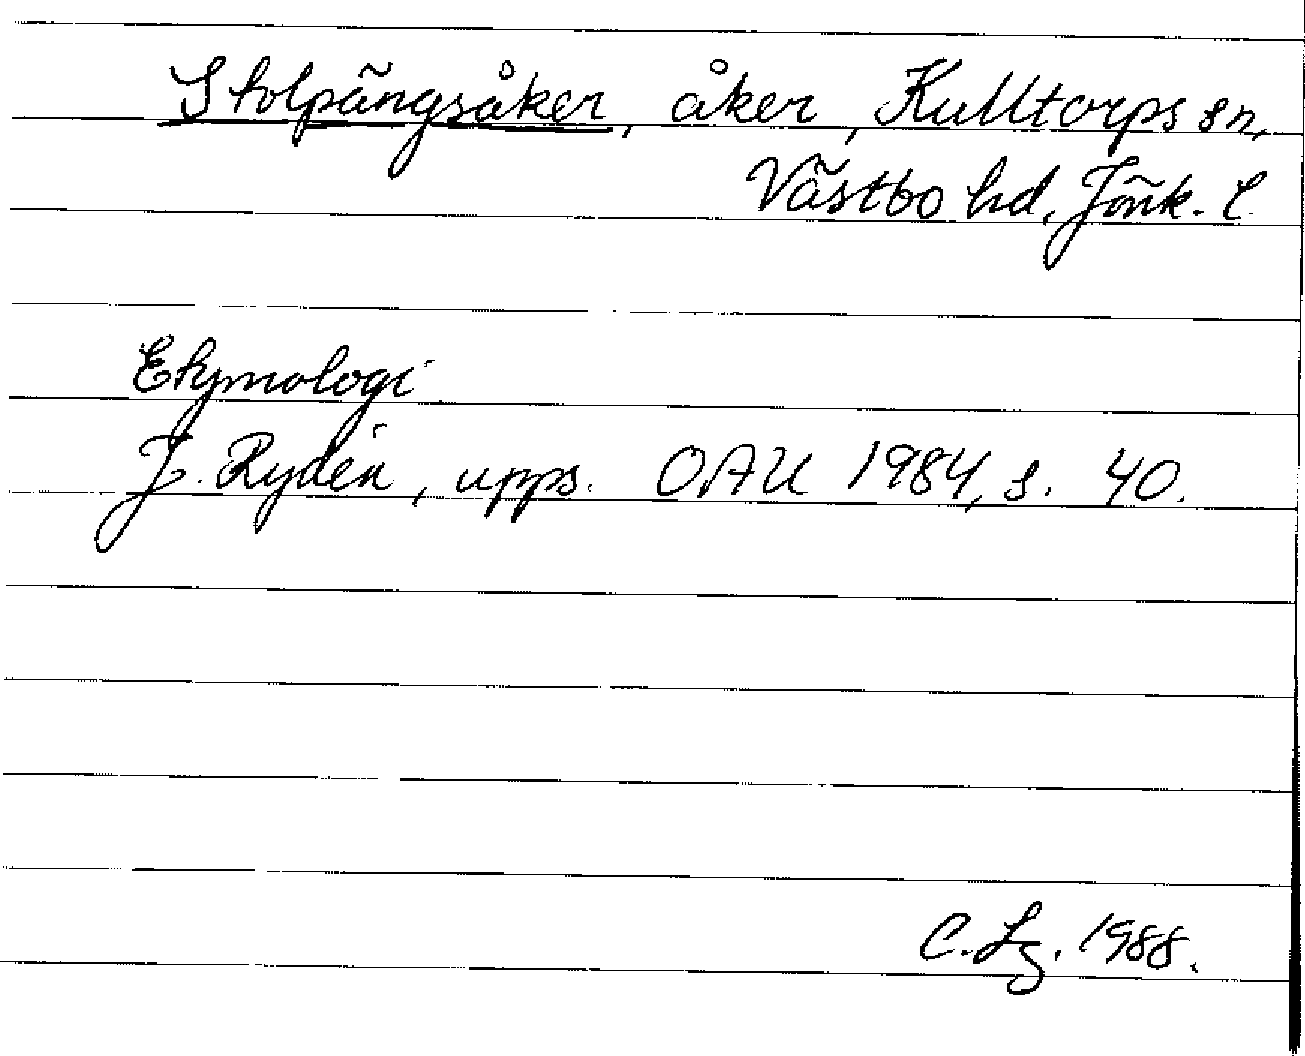 Stolpängsåker, åker, Kulltorps sn,
Västbo hd, Jönk. l.
Etymologi
J. Rydén, upps. OAU 1984, s. 40.
C. Lz. 1988.